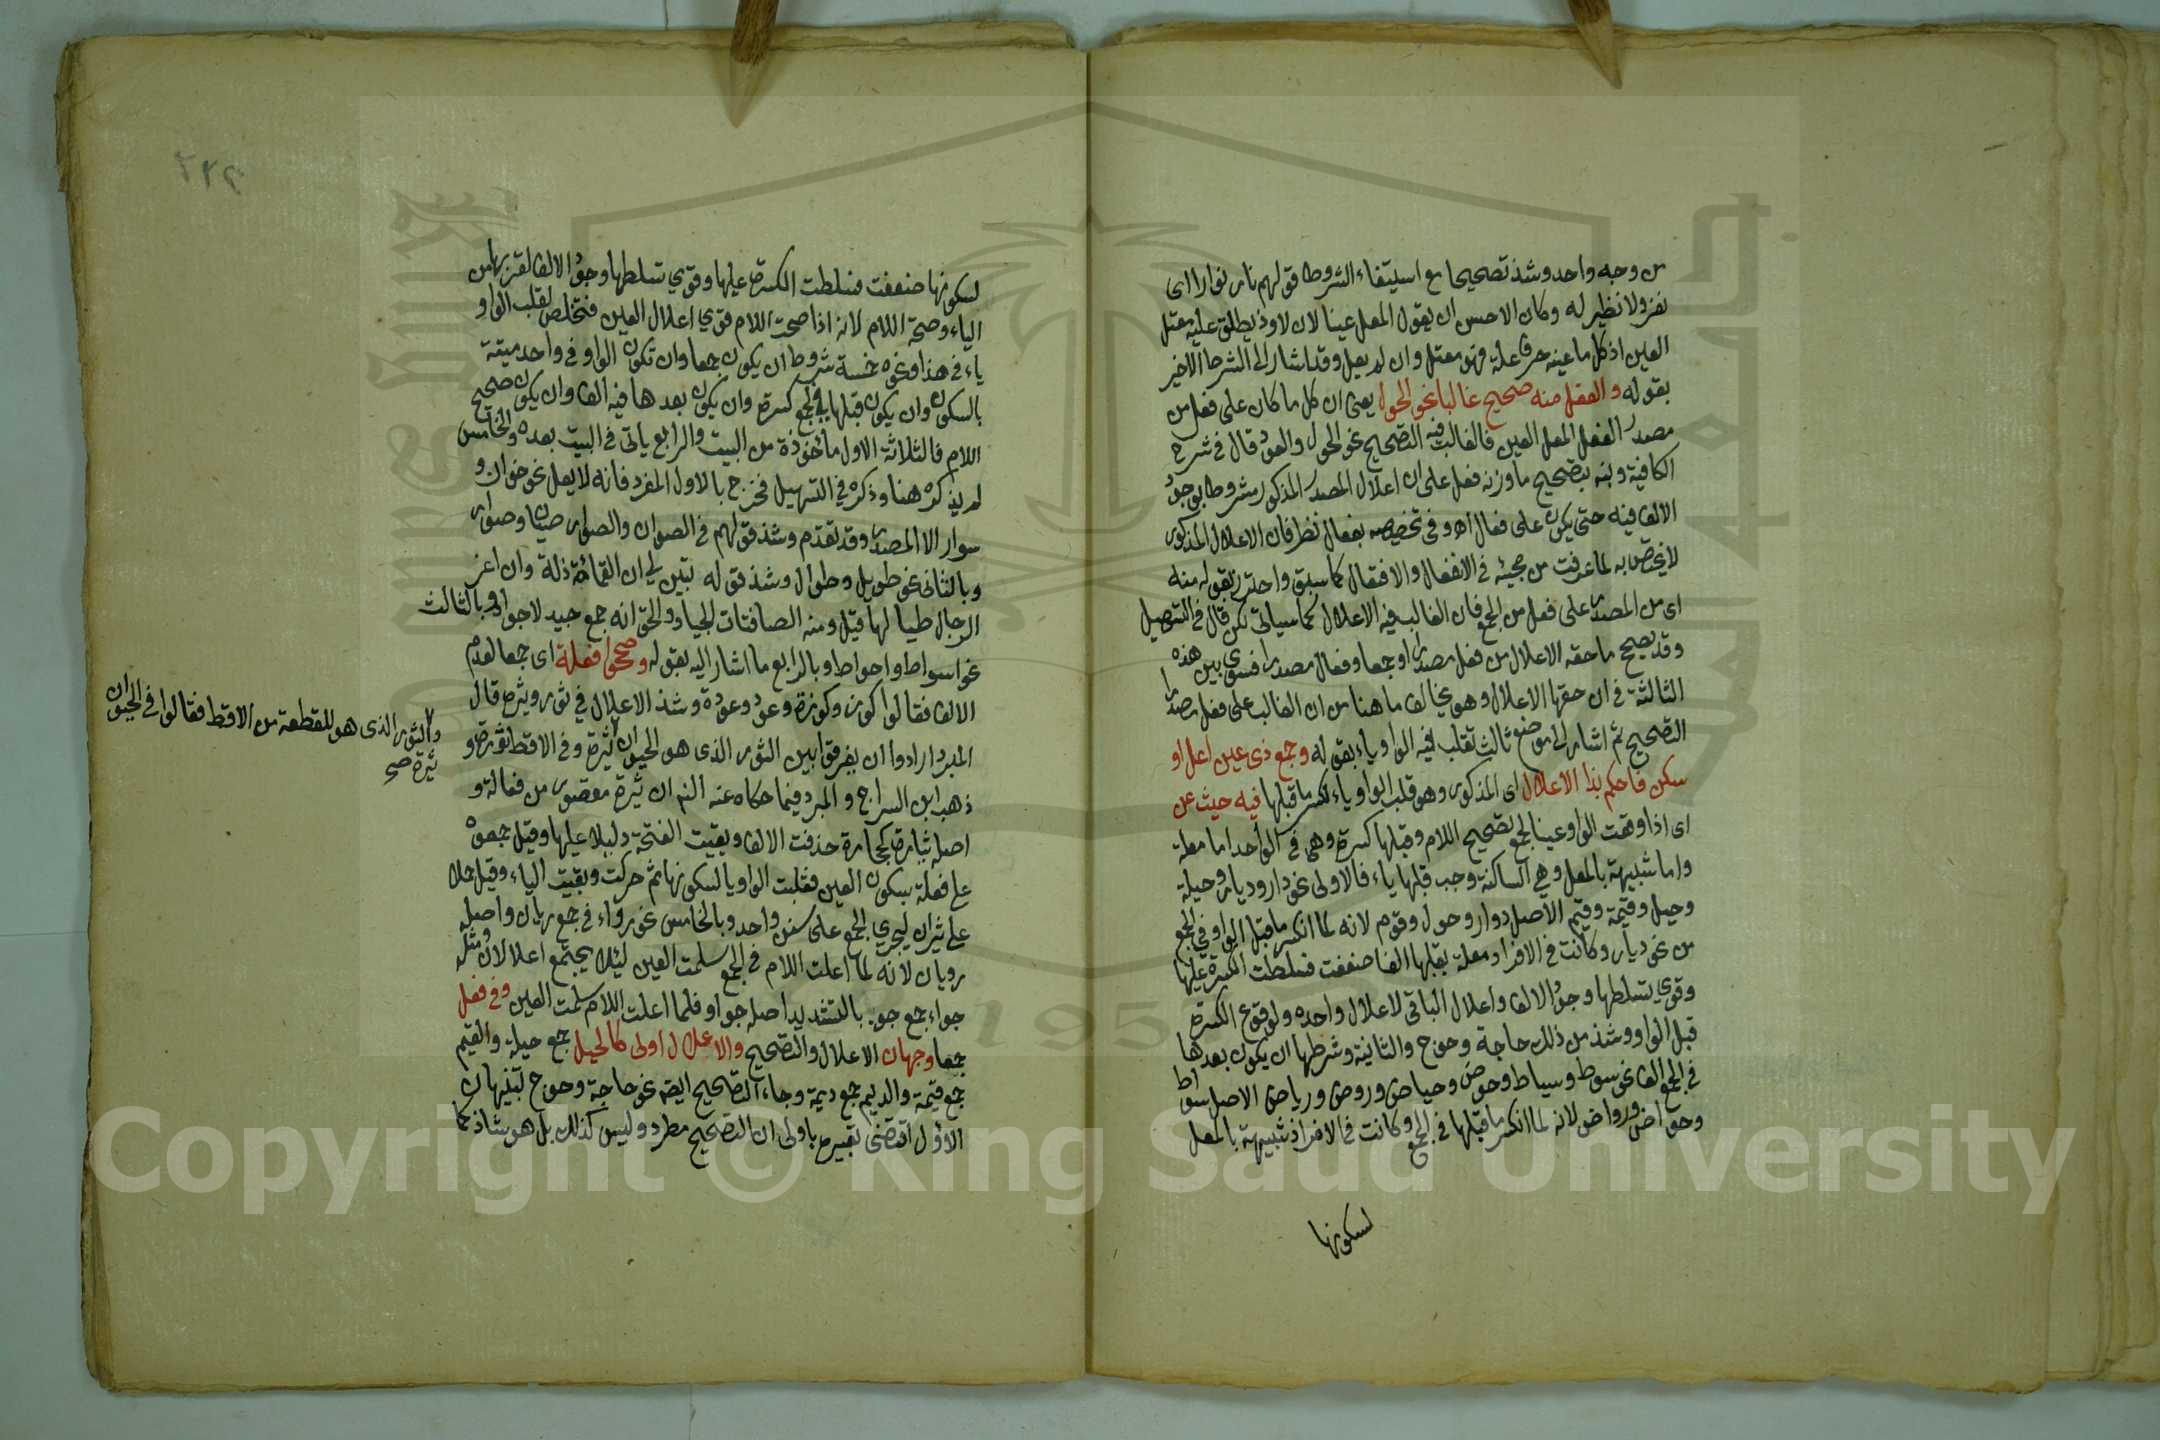 من وجه واحد وشذ تصحيحا مع استيفاء الشروط قولهم نار نوارا اي
نفر ولا نظير له وكان الاحسن ان يقول المعل عينا لان لاوذ يطلق عليه معتل
العين اذ كل ما عينه حرف علة فهو معتل وان لم يعل وقد اشار الى الشرط الاخير
بقوله والفعل منه صحيح غالبا نحو الحول يعني ان كل ما كان على فعل من
مصدر الفعل المعل العين فالغالب فيه التصحيح نحو الحول والعود قال في شرح
الكافية ونبه بتصحيح ما وزنه فعل على ان اعلال المصدر المذكور مشروط بوجود
الالف فيه حتى يكون على فعال اه وفي تخصيصه بفعال نظر فان الاعلال المذكور
لا يختص به لما عرفت من مجيئه في الانفعال والافتعال كما سبق واحترز بقوله منه
اي من المصدر على فعل من الجمع فان الغالب فيه الاعلال كما سياتي لكن قال في التسهيل
وقد يصحح ما حقه الاعلال من فعل مصدرا او جمعا وفعال مصدرا فسوى بين هذه
الثالثة في ان حقها الاعلال وهو يخالف ما هنا من ان الغالب على فعل مصدرا
التصحيح ثم اشار الى موضع ثالث تقلب فيه الواو ياء بقوله وجمع ذي عين اعل او
سكن فاحكم بذا الاعلال اي المذكور وهو قلب الواو ياء لكسر ما قبلها فيه حيث عن
اي اذا وقعت الواو عينا لجمع بصحيح اللام وقبلها كسرة وهي في الواحد اما معلة
واما شبيهة بالمعل وهي الساكنة وجب قبلها ياء فالاولى نحو دار وديار وحيلة
وحيل وقيمة وقيم الاصل دوار وحول وقوم لانه لما انكسر ما قبل الواو في الجمع
من نحو ديار وكانت في الافراد معلة بقلبها الفا ضعفت فسلطت الكسرة عليها
وقوي تسلطها وجود الالف واعلال الباقي لاعلال واحده ولوقوع الكسرة
قبل الواو وشذ من ذلك حاجة وحوج والثانية وشرطها ان يكون بعدها
في الجمع الف نحو سوط وسياط وحوض وحياض وروض ورياض الاصل سواط
وحواض ورواض لانه لما انكسر ما قبلها في الجمع وكانت في الافراد شبيهة بالمعل
لسكونها
لسكونها ضعفت فسلطت الكسرة عليها وقوي تسلطها وجود الالف لقربها من
الياء وصحة اللام لانه اذا صحت اللام قوي اعلال العين فتخلص لقلب الواو
ياء في هذا ونحوه خمسة شروط ان يكون جمعا وان تكون الواو في واحد ميتة
بالسكون وان يكون قبلها في الجمع كسرة وان يكون بعدها فيه الف وان يكون صحيح
اللام فالثلاثة الاول مأخوذة من البيت والرابع ياتي في البيت بعده والخامس
لم يذكره هنا وذكره في التسهيل فخرج بالاول المفرد فانه لا يعل نحو خوان و
سوار الا المصدر وقد تقدم وشذ قولهم في الصوان والصوار صيان وصيار
وبالثاني نحو طويل وطوال وشذ قوله تبين لي ان القماءة ذلة وان اعز
الرجال طيالها قيل ومنه الصافنات الجياد والحق انه جمع جيد لا جواد وبالثالث
نحو اسواط واحواط وبالرابع ما اشار اليه بقوله وصححوا فعلة اي جمعا لعدم
الالف فقالوا كوز وكوزة وعود وعودة وشذ الاعلال في ثور وثيرة قال
المبرد ارادوا ان يفرقوا بين الثور الذي هو الحيوان ثيرة وفي الاقط ثورة و
ذهب ابن السراج والمبرد فيما حكاه عنه الى ان ثيرة مقصور من فعالة و
اصله ثيارة كحجارة حذفت الالف وبقيت الفتحة دليلا عليها وقيل جمعوه
على فعلة بسكون العين فقلبت الواو يا لسكونها ثم حركت وبقيت الياء وقيل حملا
على ثيران ليجري الجمع على سنن واحد وبالخامس نحو رواء في جمع ريان واصله
رويان لانه لما اعلت اللام في الجمع سلمت العين لئلا يجتمع اعلالان ومثله
جواء جمع جو بالتشديد اصله جواو فلما اعلت اللام سلمت العين وفي فعل
جمعا وجهان الاعلال والتصحيح والاعلال اولى كالحيل جمع حيلة والقيم
جمع قيمة والديم جمع ديمة وجاء التصحيح ايضا نحو حاجة وحوج تنبيهان
الاول اقتضى تعبيره باولى ان التصحيح مطرد وليس كذلك بل هو شاذ كما
والثور الذي هو للقطعة من الاقط فقالوا في الحيوان
ثيرة صح
Copyright © King Saud University
1957